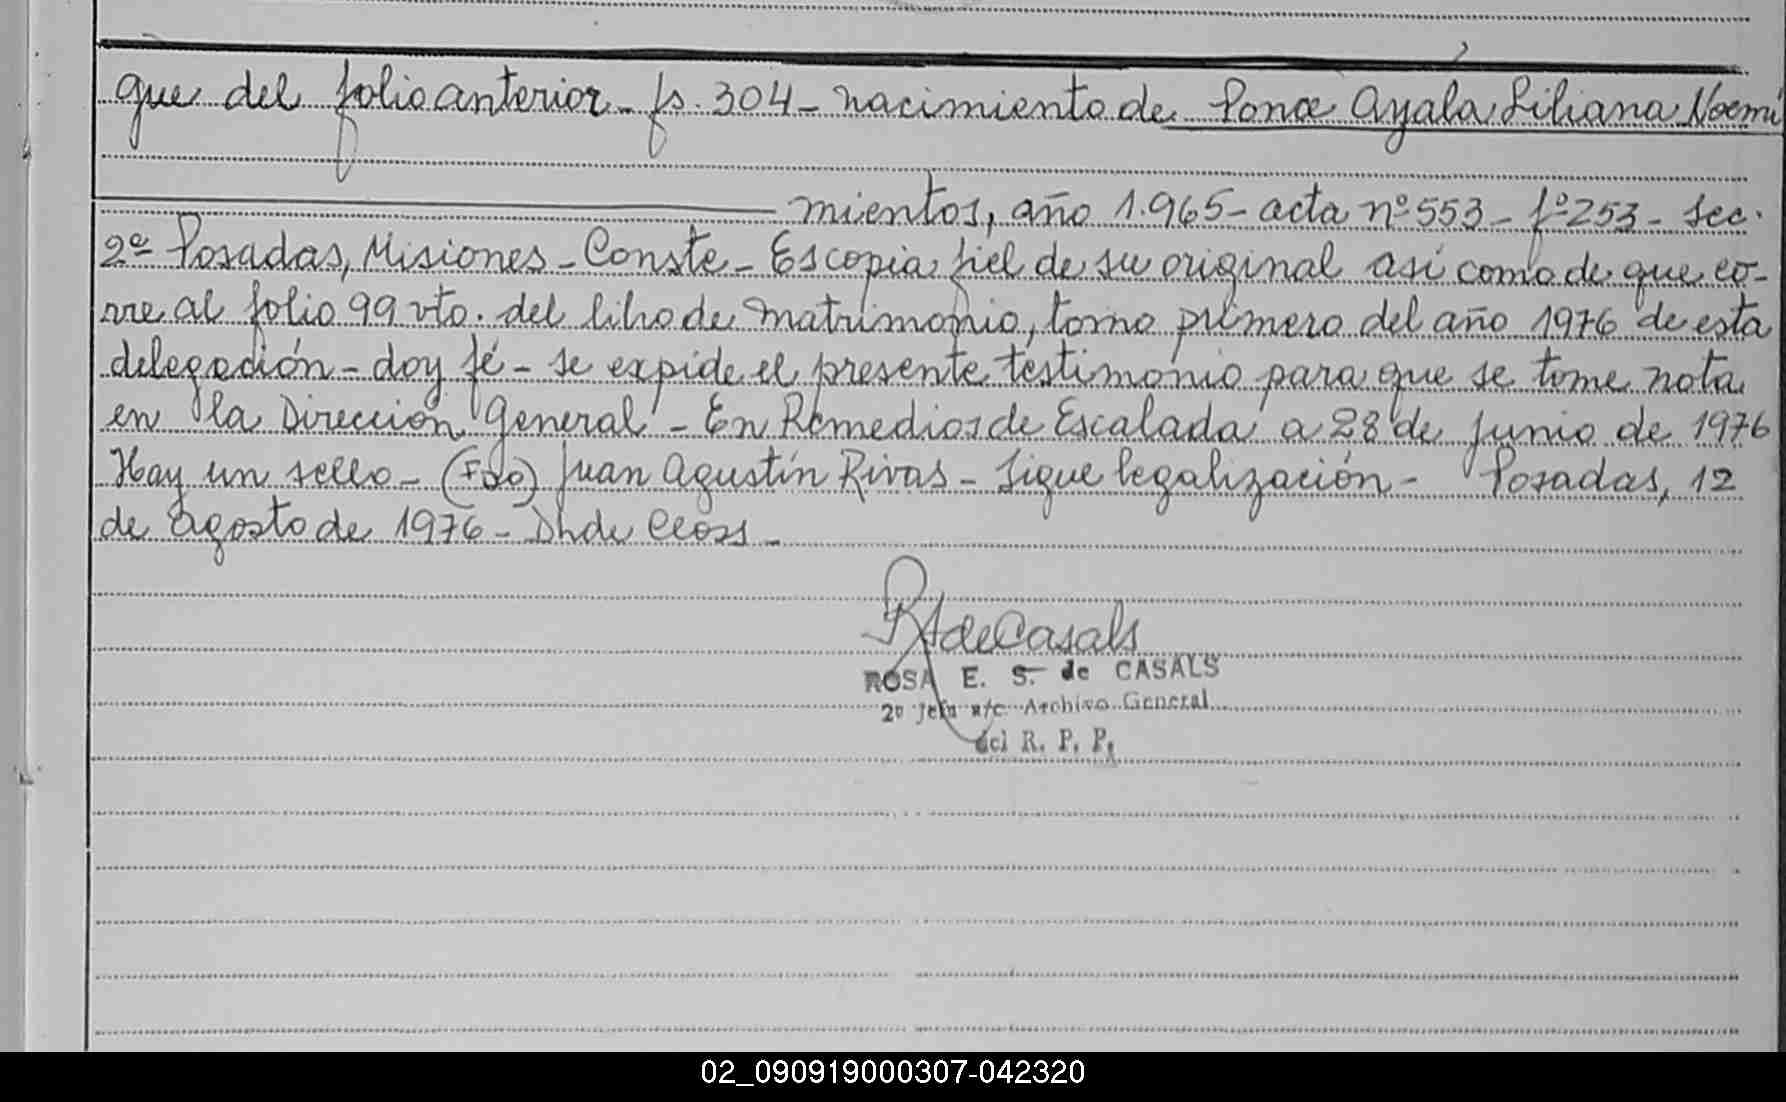 que del folio anterior - fs. 304 - nacimiento de Ponce Ayala Liliana Noemi
mientos, año 1.965 - acta nº 553 - fº 253 - Sec.
2º Posadas, Misiones - Conste - Es copia fiel de su original asi como de que co-
rre al folio 99 vto. del libro de matrimonio, tomo primero del año 1976 de esta
delegación - doy fé - se expide el presente testimonio para que se tome nota
en la Direccion General - En Remedios de Escalada a 28 de junio de 1976
Hay un sello - (Fdo) Juan Agustín Rivas - Sigue legalización - Posadas, 12
de agosto de 1976 - Closs -
deCasals
ROSA E. S. de CASALS
2º Jefa a/c Archivo General
del R. P. P.
02_090919000307-042320